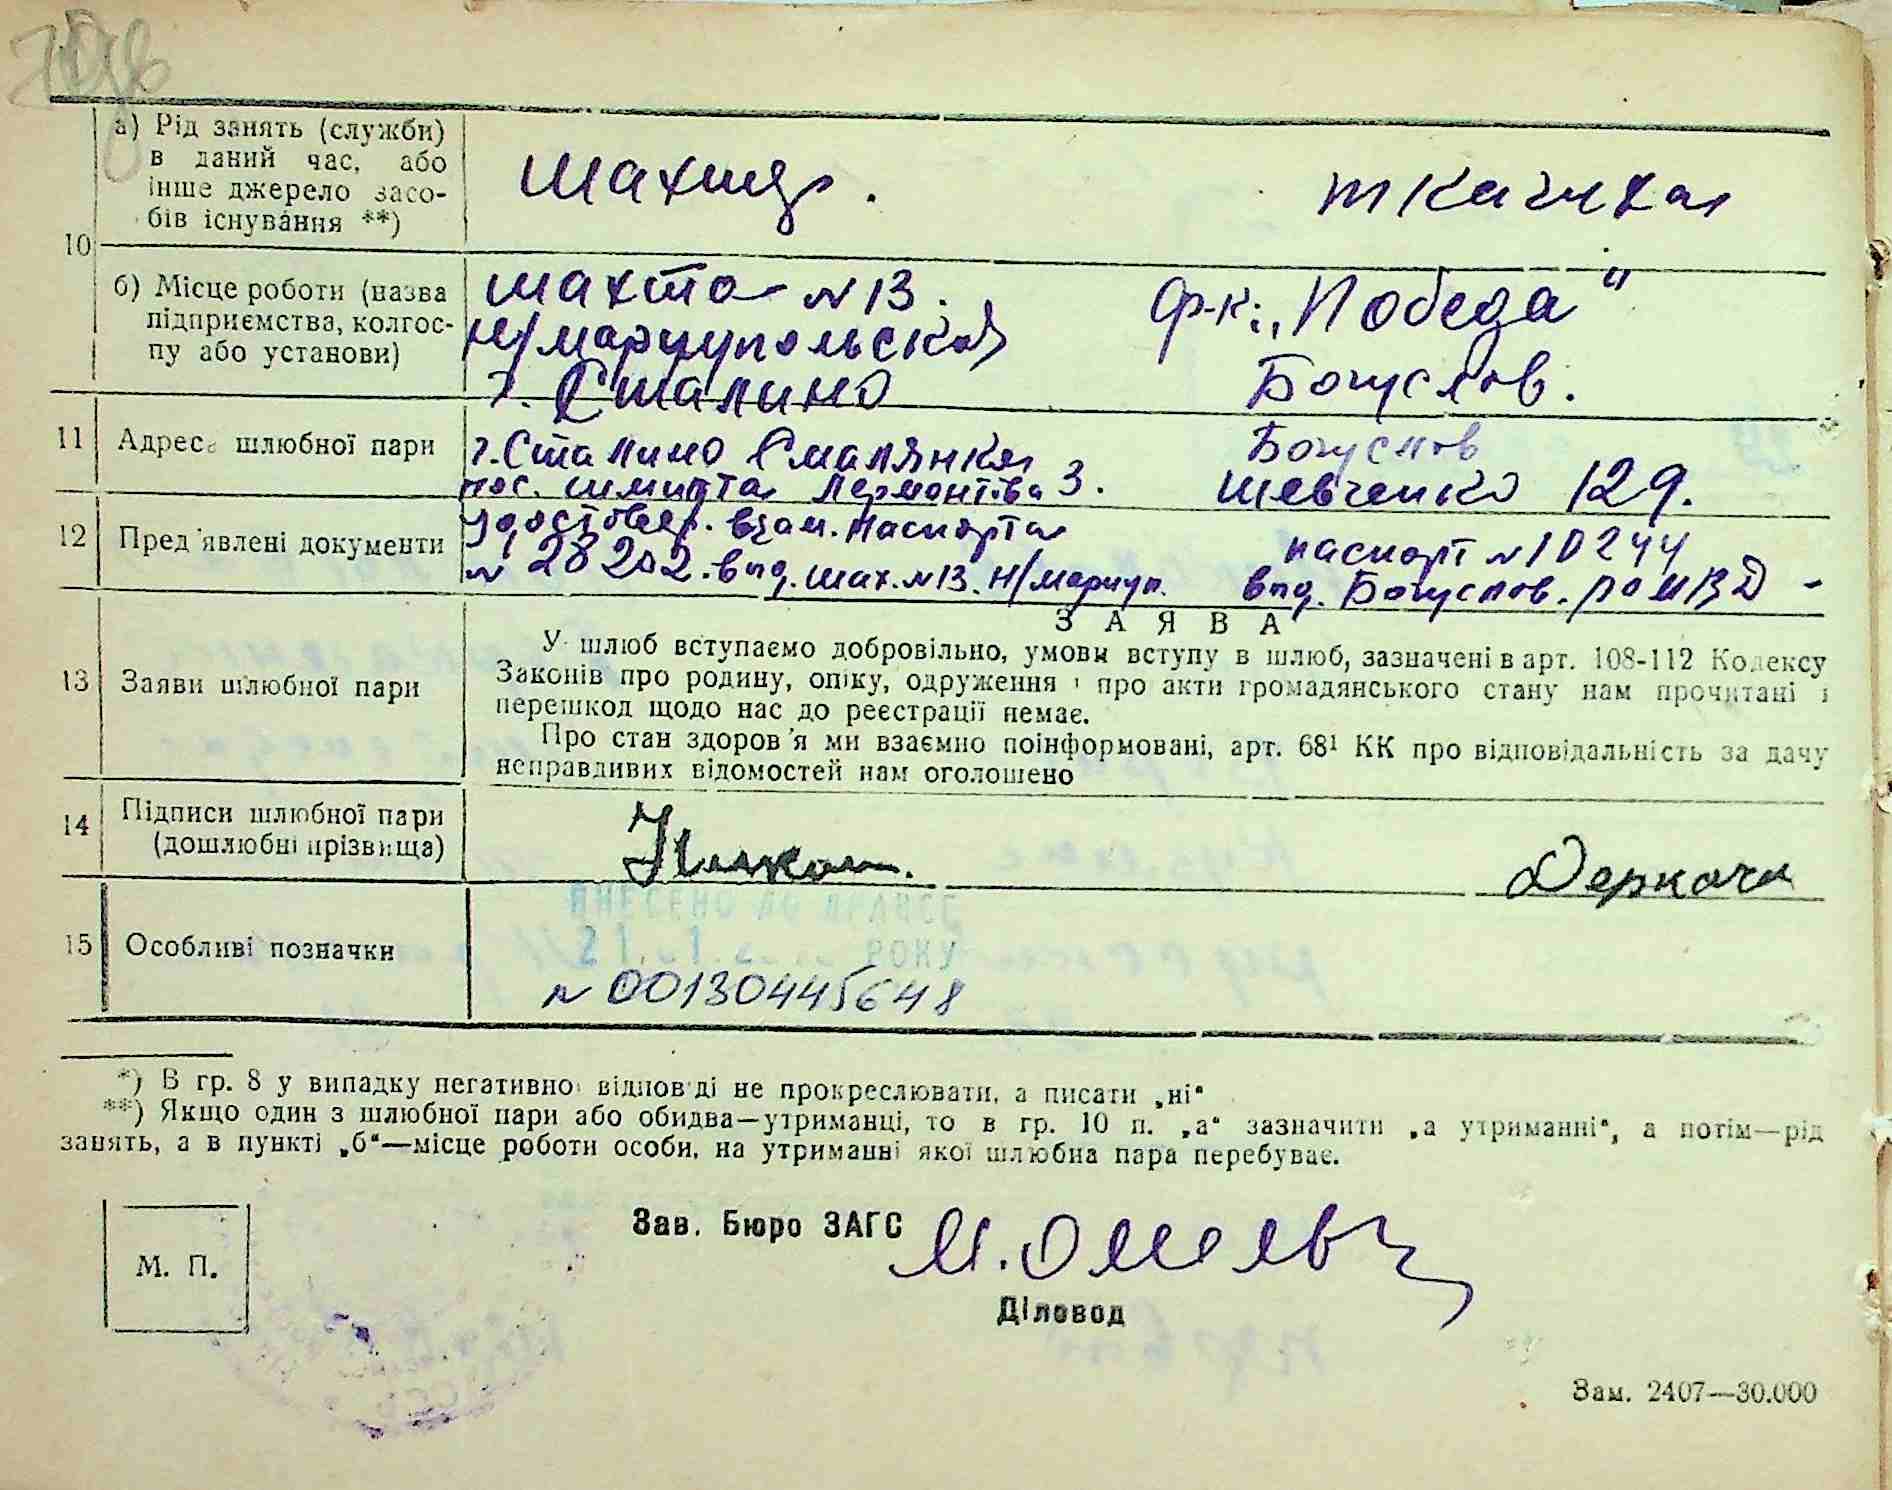 10
а) Рід занять (служби)
в даний час, або
інше джерело засо-
бів існування **)
шахтер.
ткачиха
б) Місце роботи (назва
підприємства, колгос-
пу або установи)
шахта N 13.
Н/мариупольская
г. Сталино
Ф-ка „Победа"
Богуслов.
11
Адреса шлюбної пари
г. Сталино Смалянка
пос. шмидта Лермонтова 3.
Богуслов
Шевченко 129.
12
Пред'явлені документи
Удостовер. взам. паспорта
N 28202. вид. шах. N 13. Н/мариуп.
паспорт N 10244
вид. Богуслов. РОМВД
13
Заяви шлюбної пари
ЗАЯВА
У шлюб вступаємо добровільно, умови вступу в шлюб, зазначені в арт. 108-112 Кодексу
Законів про родину, опіку, одруження і про акти громадянського стану нам прочитані і
перешкод щодо нас до реєстрації немає.
Про стан здоров'я ми взаємно поінформовані, арт. 68¹ КК про відповідальність за дачу
неправдивих відомостей нам оголошено
14
Підписи шлюбної пари
(дошлюбні прізвища)
Деркач
15
Особливі позначки
ВНЕСЕНО ДО ДРАЦСГ
РОКУ
N 00130445648
*) В гр. 8 у випадку негативної відповіді не прокреслювати, а писати „ні"
**) Якщо один з шлюбної пари або обидва—утриманці, то в гр. 10 п. „а" зазначити „а утриманні", а потім—рід
занять, а в пункті „б"—місце роботи особи, на утриманні якої шлюбна пара перебуває.
М. П.
Зав. Бюро ЗАГС
Діловод
Зам. 2407—30.000